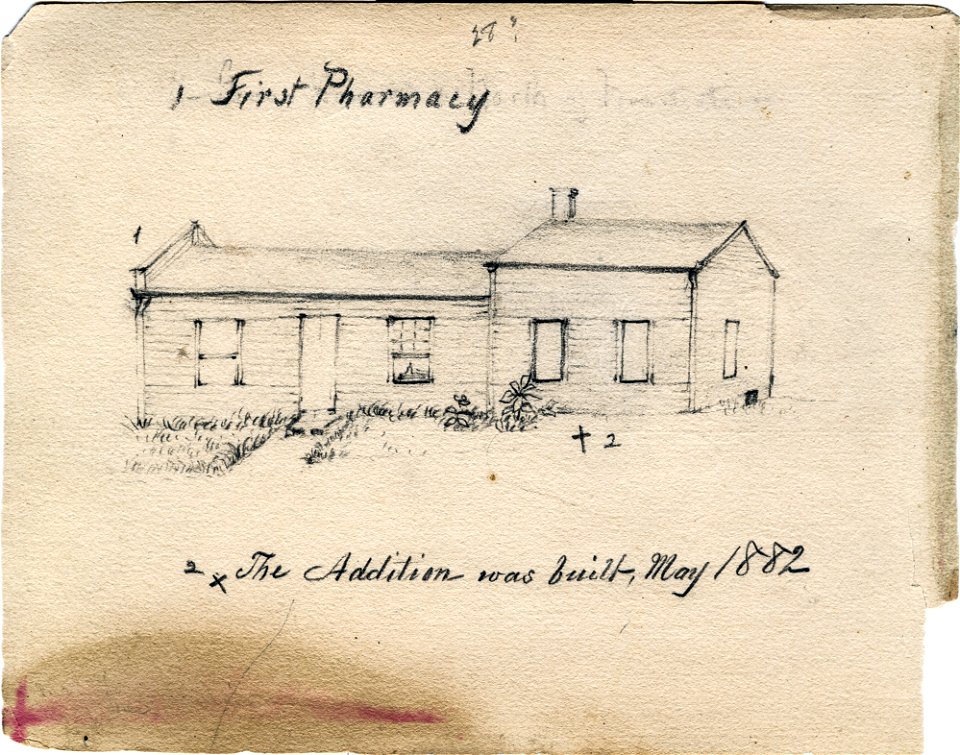 1 First Pharmacy
1
† 2
2 x The Addition was built, May 1882